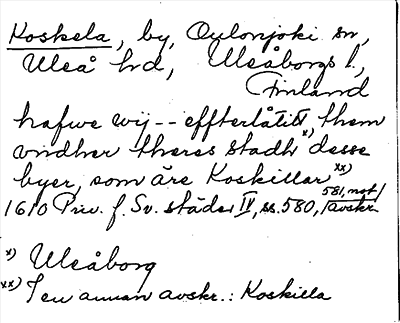 Koskela, by, Oulonjoki sn,
Uleå hd, Uleåborgs l.,
Finland
hafwe wij -- effterlåtitt them
vndher theras stadh x) desse
byer, som äre Koskillar xx)
1610 Priv. f. Sv. städer IV, ss. 580, 581, not/avskr.
x) Uleåborg
xx) I en annan avskr.: Koskilla